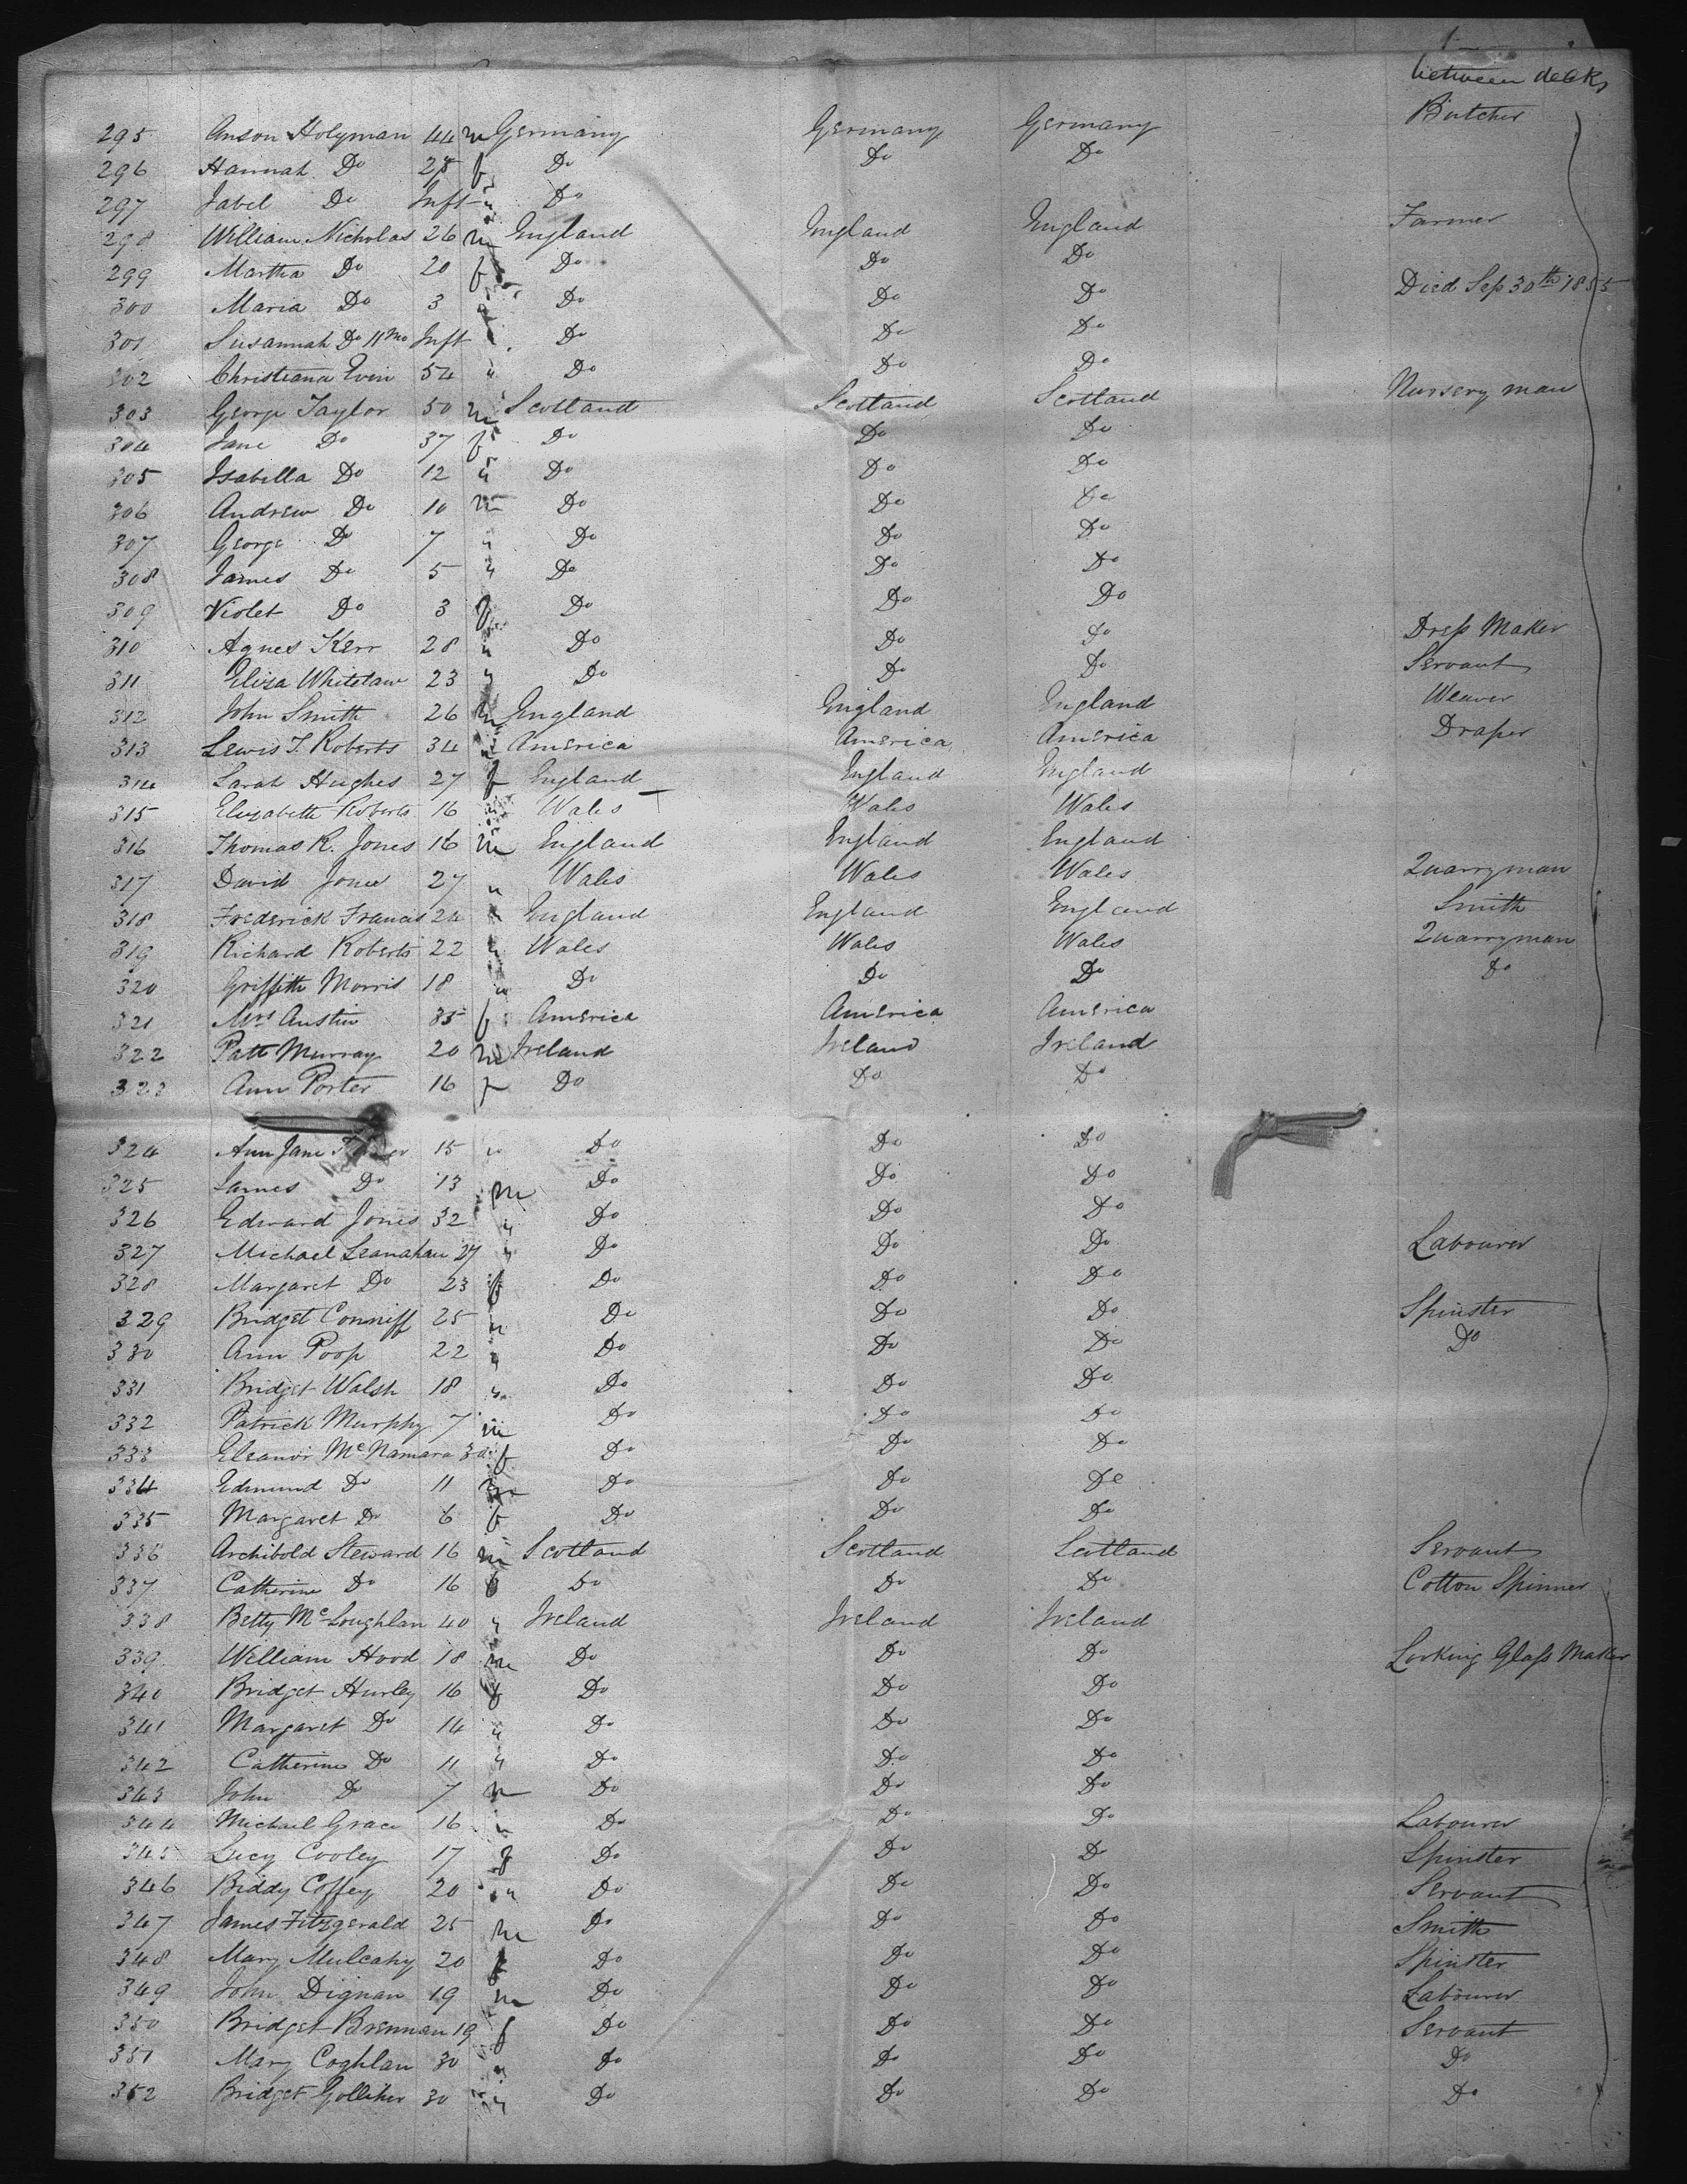 between decks
295 Anson Holyman 44 m Germany Germany Germany Butcher
296 Hannah Do 28 f Do Do Do
297 Jabel Do Inft " Do
298 William Nicholas 26 m England England England Farmer
299 Martha Do 20 f Do Do Do
300 Maria Do 3 " Do Do Do Died Sep 30th 1855
301 Susannah Do 11 mo Inft " Do Do Do
302 Christiana Evin 54 " Do Do Do
303 George Taylor 50 m Scotland Scotland Scotland Nursery man
304 Jane Do 37 f Do Do Do
305 Isabella Do 12 " Do Do Do
306 Andrew Do 10 m Do Do Do
307 George Do 7 " Do Do Do
308 James Do 5 " Do Do Do
309 Violet Do 3 f Do Do Do
310 Agnes Kerr 28 " Do Do Do Dress Maker
311 Eliza Whitelaw 23 " Do Do Do Servant
312 John Smith 26 m England England England Weaver
313 Lewis T. Roberts 34 " America America America Draper
314 Sarah Hughes 27 f England England England
315 Elizabeth Roberts 16 " Wales Wales Wales
316 Thomas R. Jones 16 m England England England
317 David Jones 27 " Wales Wales Wales Quarryman
318 Frederick Francis 24 " England England England Smith
319 Richard Roberts 22 " Wales Wales Wales Quarryman
320 Griffith Morris 18 " Do Do Do Do
321 Mrs Austin 35 f America America America
322 Patt Murray 20 m Ireland Ireland Ireland
323 Ann Porter 16 f Do Do Do
324 Ann Jane 15 " Do Do Do
325 James Do 13 m Do Do Do
326 Edward Jones 32 " Do Do Do
327 Michael Leanahan 27 " Do Do Do Labourer
328 Margaret Do 23 f Do Do Do
329 Bridget Conniff 25 " Do Do Do Spinster
330 Ann Poop 22 " Do Do Do Do
331 Bridget Walsh 18 " Do Do Do
332 Patrick Murphy 7 m Do Do Do
333 Eleanor McNamara 30 f Do Do Do
334 Edmund Do 11 m Do Do Do
335 Margaret Do 6 f Do Do Do
336 Archibold Steward 16 m Scotland Scotland Scotland Servant
337 Catherine Do 16 f Do Do Do Cotton Spinner
338 Betty McLoughlan 40 " Ireland Ireland Ireland
339 William Hood 18 m Do Do Do Looking Glass Maker
340 Bridget Hurley 16 f Do Do Do
341 Margaret Do 14 " Do Do Do
342 Catherine Do 11 " Do Do Do
343 John Do 7 m Do Do Do
344 Michael Grace 16 " Do Do Do Labourer
345 Lucy Cooley 17 f Do Do Do Spinster
346 Biddy Coffey 20 " Do Do Do Servant
347 James Fitzgerald 25 m Do Do Do Smith
348 Mary Mulcahy 20 f Do Do Do Spinster
349 John Dignan 19 m Do Do Do Labourer
350 Bridget Brennan 19 f Do Do Do Servant
351 Mary Coghlan 30 " Do Do Do Do
352 Bridget Golliher 30 " Do Do Do Do